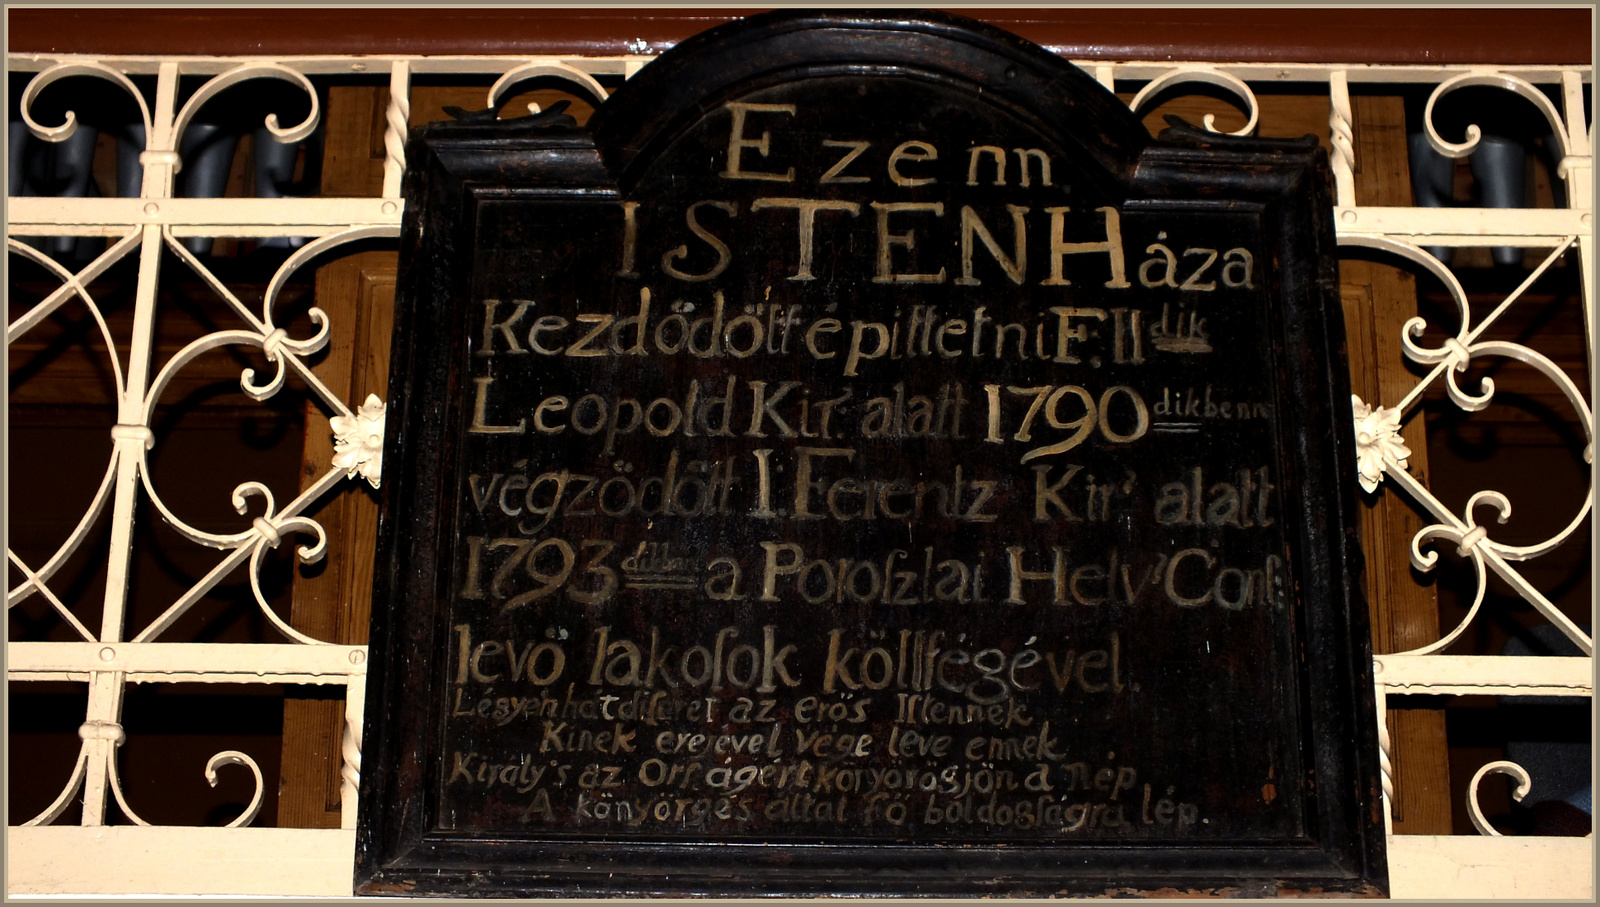 Ezenn
ISTENHáza
Kezdődött épittetni F. II dik
Leopold Kir. alatt 1790 dikbenn
végződött I. Ferentz Kir. alatt
1793 dikban a Poroſzlai Helv. Conf:
levö lakoſok költſégével.
Légyen hát ditſéret az erős Iſtennek
Kinek erejével vége leve ennek
Király's az Orſzágért könyörögjön a Nép
A könyörgés által fő boldogſágra lép.